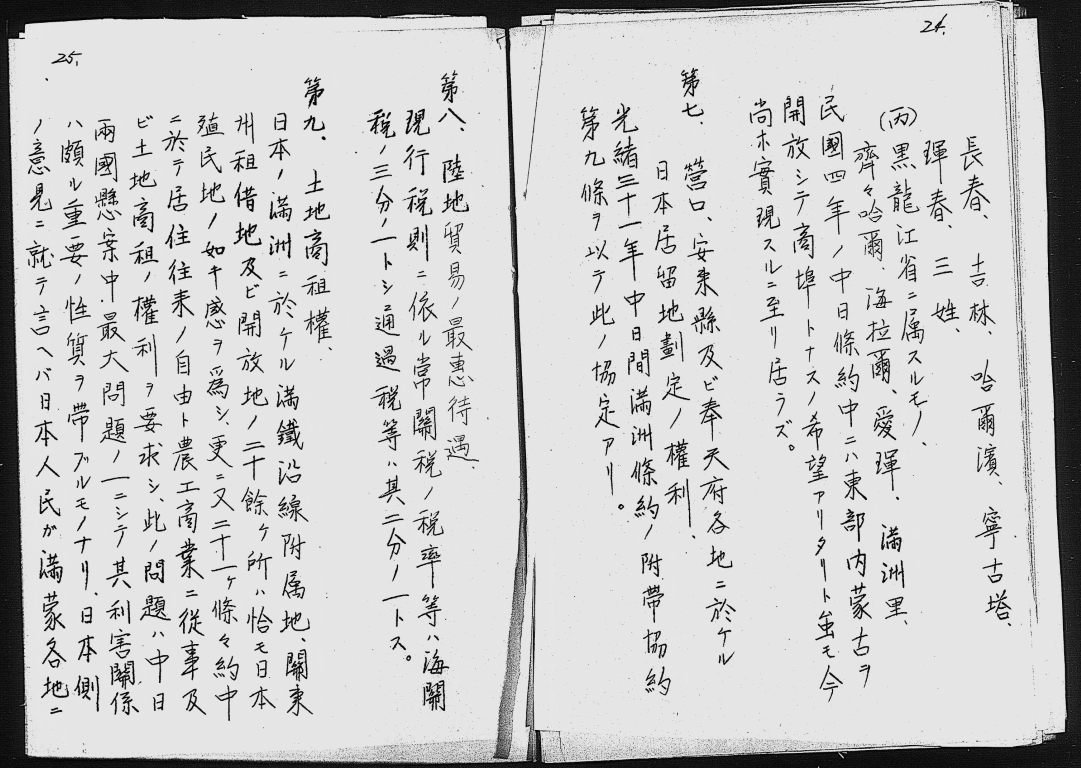 24.
長春、吉林、哈爾濱、寧古塔、
琿春、三姓、
(丙)黒龍江省ニ属スルモノ、
齊々哈爾、海拉爾、愛琿、満洲里、
民國四年ノ中日條約中ニハ東部内蒙古ヲ
開放シテ商埠トナスノ希望アリタリト雖モ今
尚ホ實現スルニ至リ居ラズ。
第七、營口、安東縣及ビ奉天府各地ニ於ケル
日本居留地劃定ノ權利、
光緒三十一年中日間満洲條約ノ附帶協約
第九條ヲ以テ此ノ協定アリ。
25.
第八、陸地貿易ノ最惠待遇、
現行税則ニ依ル常關税ノ税率等ハ海關
税ノ三分ノ一トシ通過税等ハ其二分ノ一トス。
第九、土地商租權、
日本ノ満洲ニ於ケル満鐵沿線附属地、關東
州租借地及ビ開放地ノ二十餘ケ所ハ恰モ日本
殖民地ノ如キ感ヲ爲シ、更ニ又二十一ケ條々約中
ニ於テ居住往来ノ自由ト農工商業ニ従事及
ビ土地商租ノ權利ヲ要求シ、此ノ問題ハ中日
兩國懸案中最大問題ノ一ニシテ其利害關係
ハ頗ル重要ノ性質ヲ帶ブルモノナリ、日本側
ノ意見ニ就テ言ヘバ日本人民ガ満蒙各地ニ